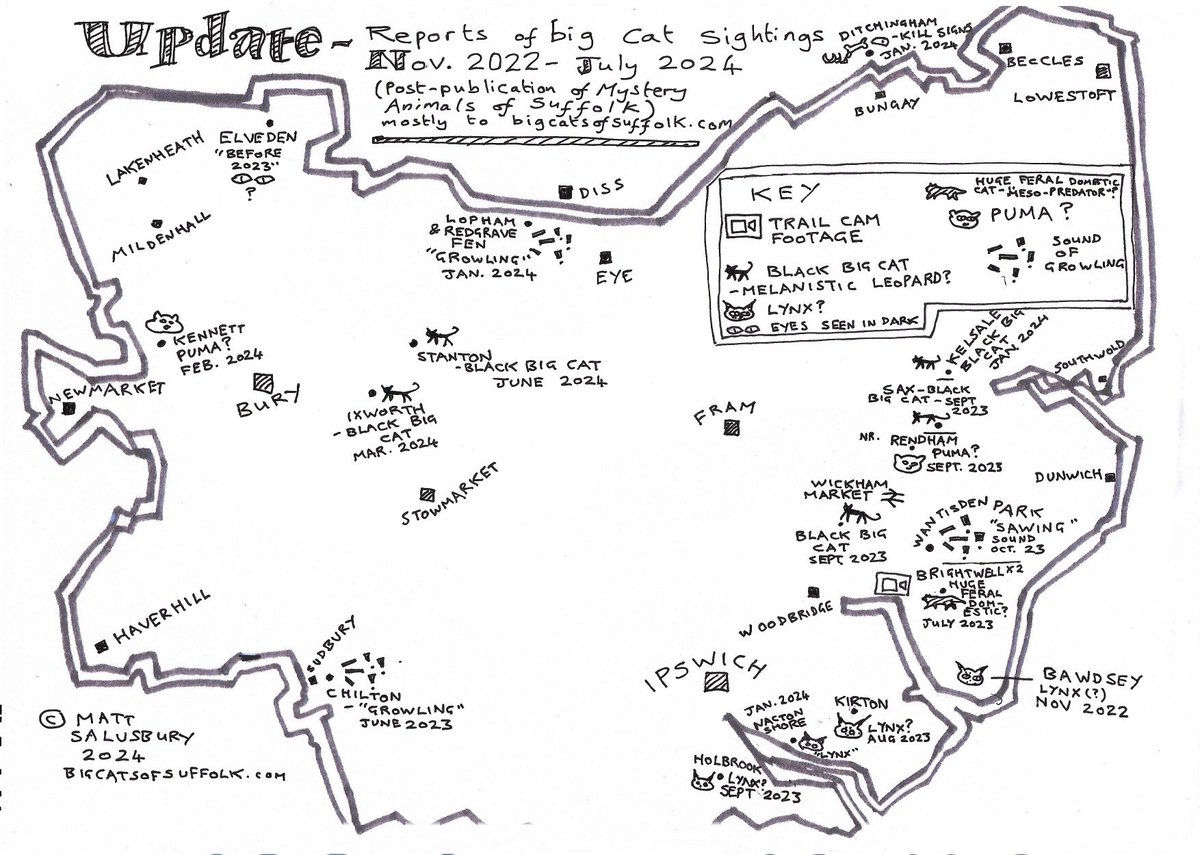 Update - Reports of big cat sightings
Nov. 2022 - July 2024
(Post-publication of Mystery
Animals of Suffolk)
mostly to bigcatsofsuffolk.com
DITCHINGHAM
-KILL SIGNS
JAN. 2024
BECCLES
LOWESTOFT
BUNGAY
LAKENHEATH
ELVEDEN
"BEFORE
2023"
?
MILDENHALL
DISS
LOPHAM
& REDGRAVE
FEN
"GROWLING"
JAN. 2024
EYE
KEY
TRAIL CAM
FOOTAGE
BLACK BIG CAT
-MELANISTIC LEOPARD?
LYNX?
EYES SEEN IN DARK
HUGE FERAL DOMETIC
CAT-MESO-PREDATOR-?
PUMA?
SOUND
OF
GROWLING
KENNETT
PUMA?
FEB. 2024
NEWMARKET
BURY
STANTON
-BLACK BIG CAT
JUNE 2024
IXWORTH
-BLACK BIG
CAT
MAR. 2024
STOWMARKET
FRAM
KELSALE
BLACK BIG
CAT
JAN. 2024
SOUTHWOLD
SAX-BLACK
BIG CAT-SEPT
2023
NR. RENDHAM
PUMA?
SEPT. 2023
DUNWICH
WICKHAM
MARKET
BLACK BIG
CAT
SEPT 2023
WANTISDEN PARK
"SAWING"
SOUND
OCT. 23
BRIGHTWELL X2
HUGE
FERAL
DOM-
ESTIC?
JULY 2023
WOODBRIDGE
HAVERHILL
SUDBURY
CHILTON
-"GROWLING"
JUNE 2023
IPSWICH
BAWDSEY
LYNX(?)
NOV 2022
JAN. 2024
NACTON
SHORE
"LYNX"
KIRTON
LYNX?
AUG 2023
HOLBROOK
LYNX?
SEPT 2023
© MATT
SALUSBURY
2024
BIGCATSOFSUFFOLK.COM